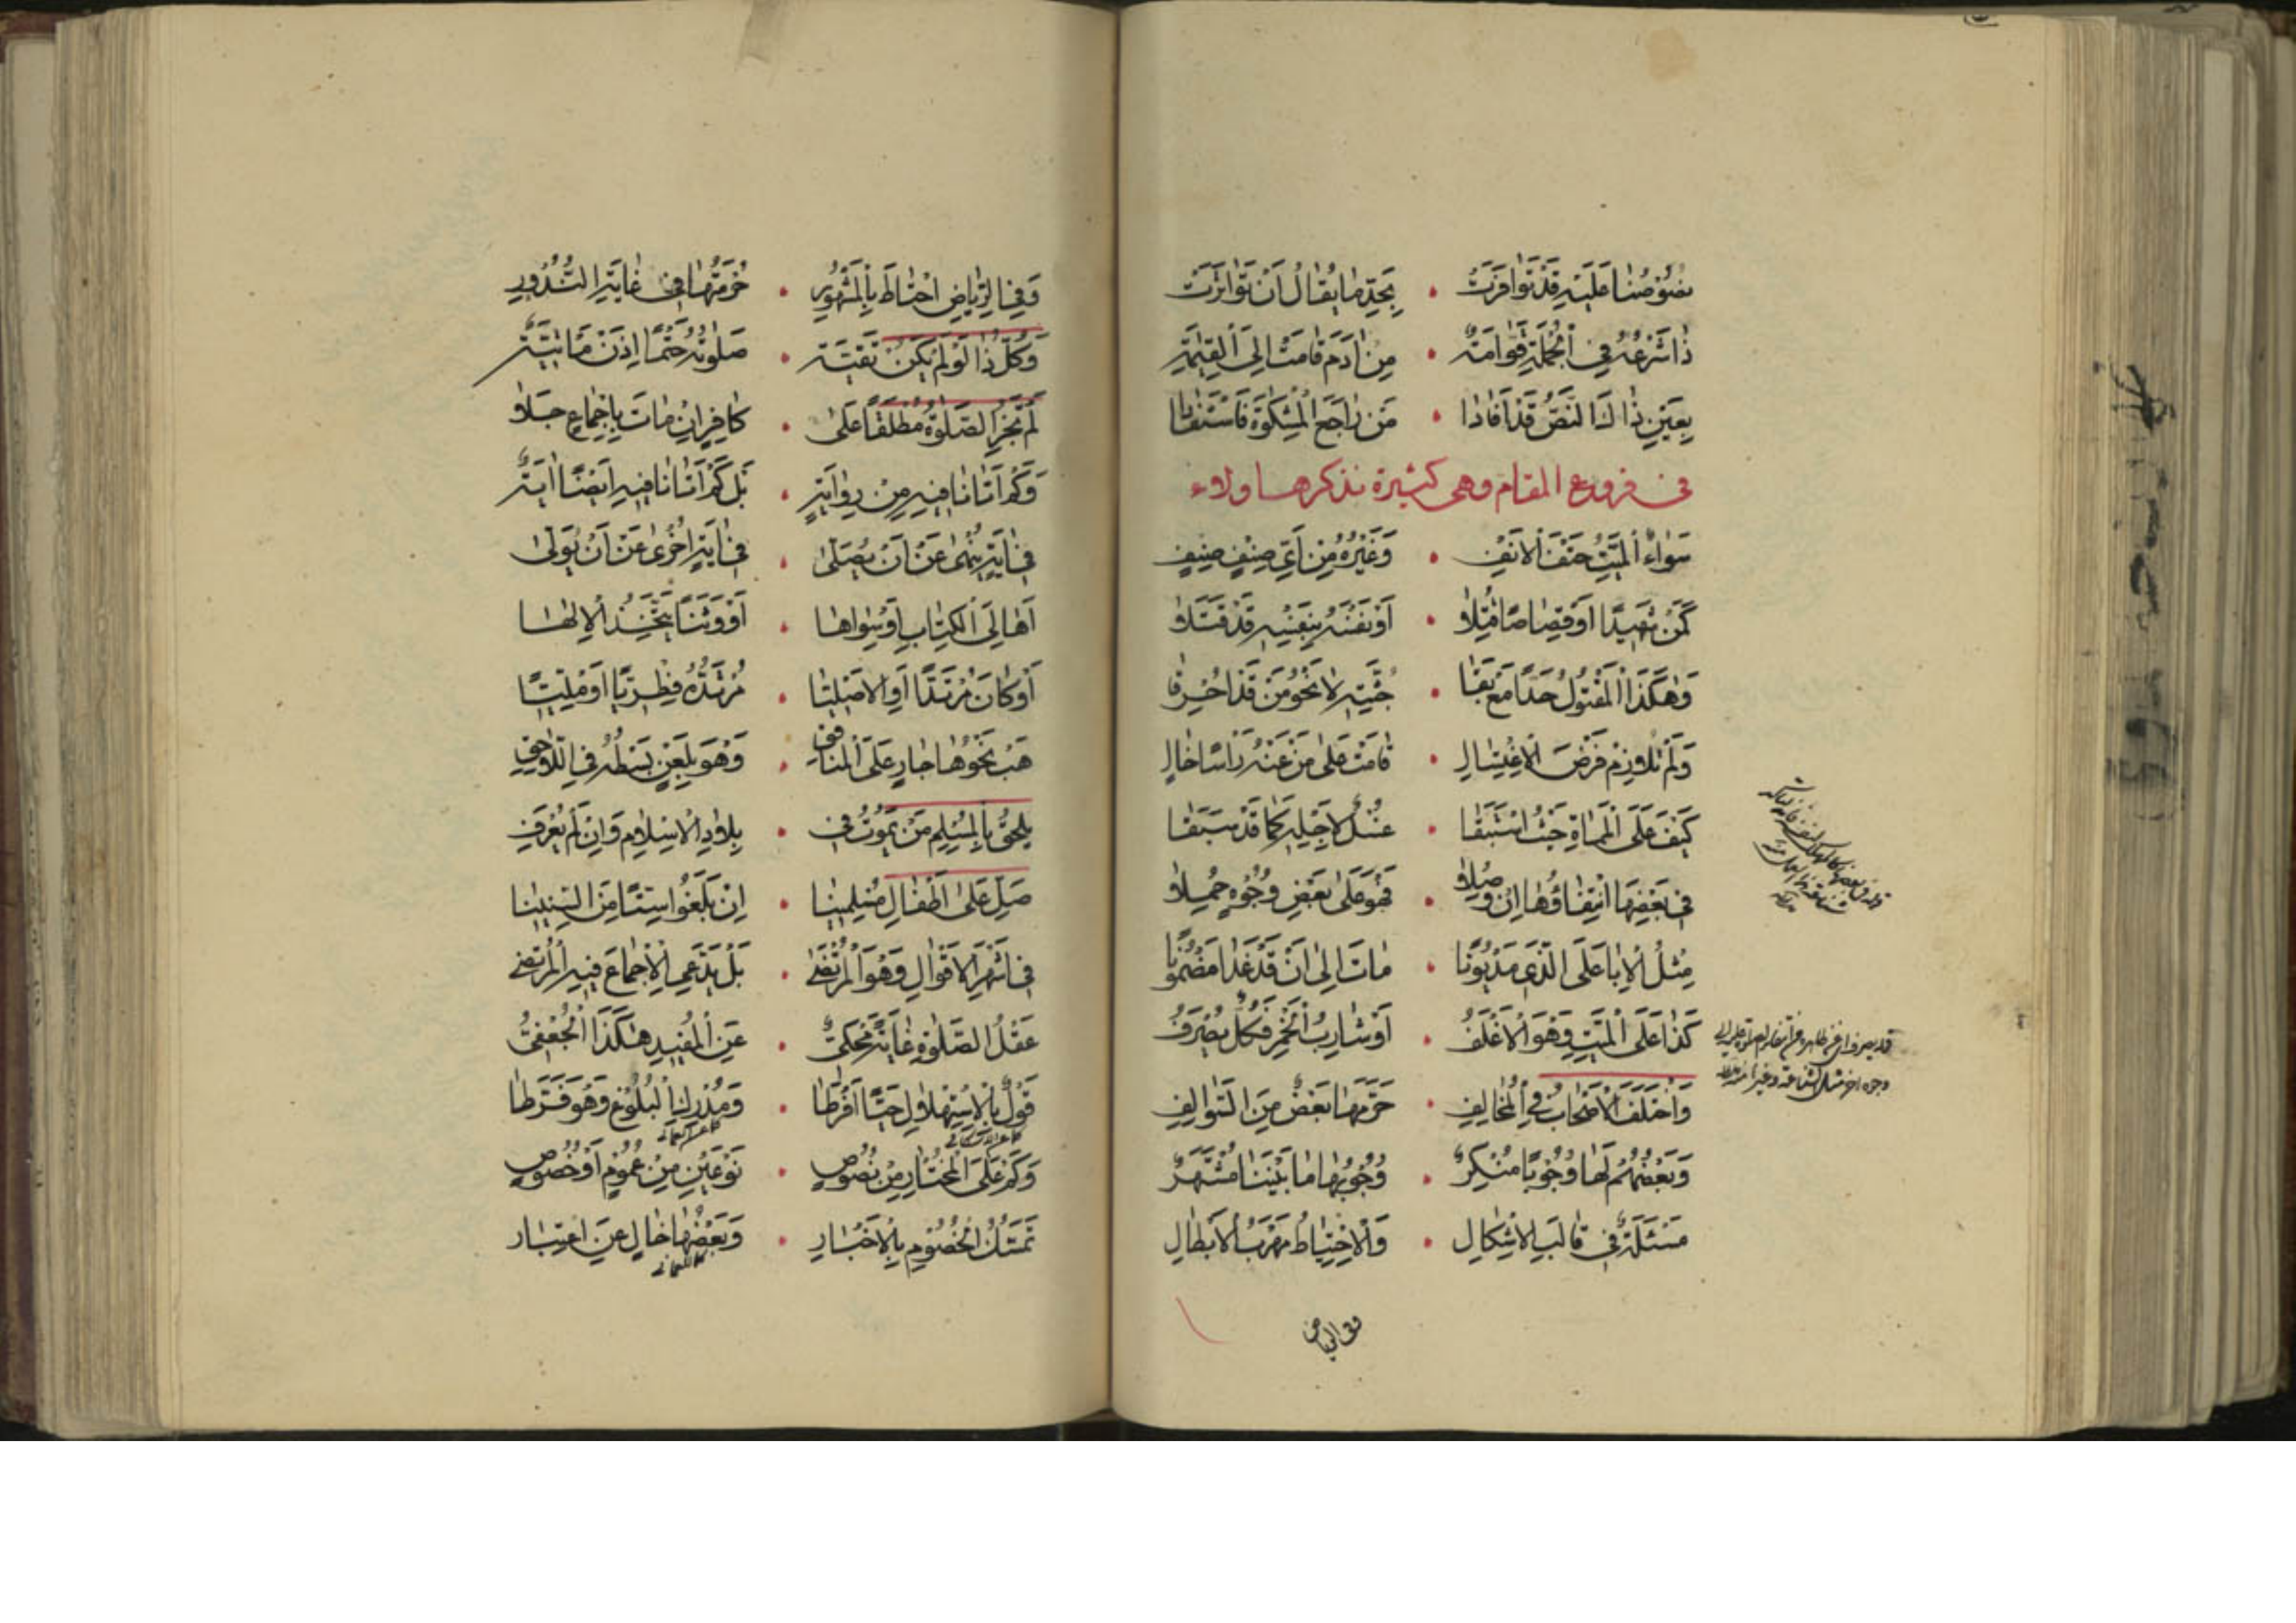 نصوصنا عليه قد توافرت • بحد ما يقال أن تواترت
ذا شرعه في الجملة قوامة • من آدم قامت إلى القيمة
بعين ذا ك النص قد أفادا • من راجع المشكوة فاستفادا
في فروع المقام وهي كثيرة نذكرها ولاء
سواء الميت حتف الانف • وغيره من أي صنف صنف
كمن شهيدا أو قصاصا قتلا • أو نفسه بنفسه قد قتلا
وهكذا المقتول حدا مع بقا • جثته لا نحو من قد احرقا
ولم تلازم فرض الاغتسال • قامت على من عنه رأسا خال
كيف على المماة حيث استبقا • غسل لاجله كما قد سبقا
في بعضها انتفاؤها ان وصلا • فهو على بعض وجوه حملا
مثل الإبا على الذي مديونا • مات الى ان قد غدا مضمونا
كذا على الميت وهو الاغلف • أو شارب الخمر فكل يصرف
واختلف الاصحاب في المخالف • حرمها بعض من السوالف
وبعضهم لها وجوبا منكر • وجوبها ما بيننا مشتهر
مسئلة في قالب الاشكال • والاحتياط مهرب الابطال
وفي الرياض
وفي الرياض احتاط بالمشهور • حرمتها في غاية الندور
وكل ذا لو لم يكن تقية • صلوته حتما اذن مأتية
لم تجز الصلوة مطلقا على • كافر ان مات باجماع جلا
وكم اتانا فيه من رواية • بل كم اتانا فيه ايضا اية
في اية ينهى عن ان يصلى • في اية اخرى عن ان يولى
أهالي الكتاب أو سواها • أو وثنا يتخذ الالها
أو كان مرتدا أو الاصليا • مرتده فطريا أو مليا
هب نحوها جار على المنافق • وهو بلعن بسطه في اللاحق
يلحق بالمسلم من يموت في • بلاد الاسلام وان لم يعرف
صل على اطفال مسلمينا • ان بلغوا ستا من السنينا
في اشهر الاقوال وهو المرتضى • بل يدعي الاجماع فيه المرتضى
عقل الصلوة غاية محكي • عن المفيد هكذا الجعفي
قول بالاستهلال حيا افرطا • ومدرك البلوغ وهو فرطا
وكم على المختار من نصوص • نوعين من عموم أو خصوص
تمسك الخصوم بالاخبار • وبعضها خال عن اعتبار